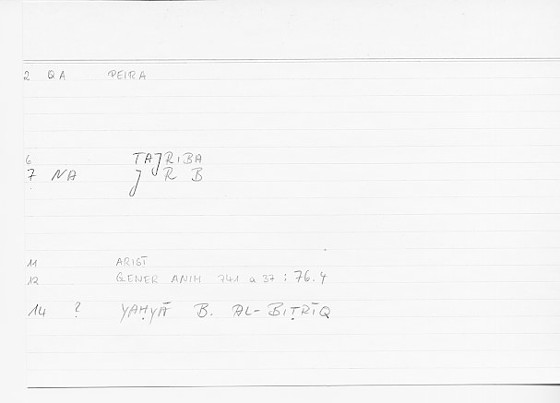 2 QA PEIRA
6 TAJRIBA
7 NA J R B
11 ARIST
12 GENER ANIM 741 a 37 : 76.4
14 ? YAḤYĀ B. AL-BIṬRĪQ